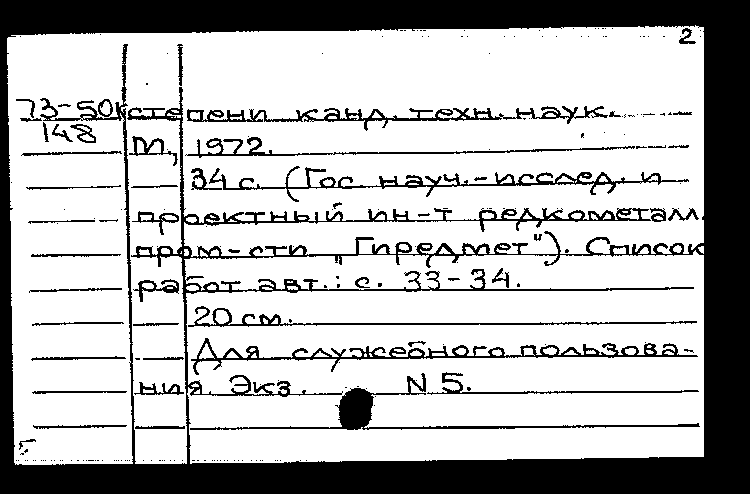 2
73-50к степени канд. техн. наук.
148
М., 1972.
34 с. (Гос. науч.-исслед. и
проектный ин-т редкометалл.
пром-сти „Гиредмет"). Список
работ авт.: с. 33-34.
20 см.
Для служебного пользова-
ния. Экз. N 5.